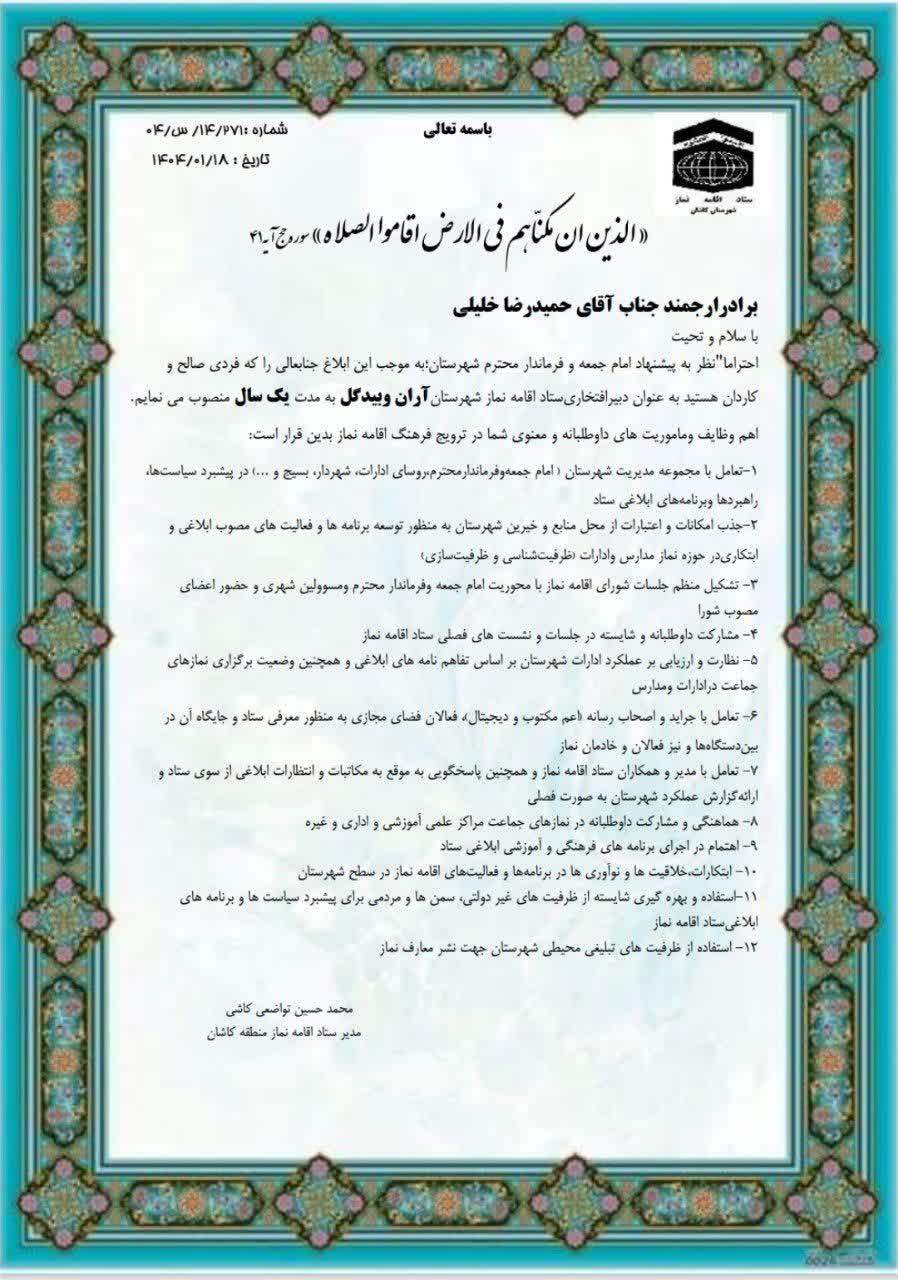 باسمه تعالی
شماره :۱۴/۲۷۱/ س/۰۴
تاریخ : ۱۴۰۴/۰۱/۱۸
ستاد اقامه نماز
شهرستان کاشان
« الذین ان مکنّاهم فی الارض اقاموا الصلاه » سوره حج آیه ۴۱
برادرارجمند جناب آقای حمیدرضا خلیلی
با سلام و تحیت
احتراما"نظر به پیشنهاد امام جمعه و فرماندار محترم شهرستان؛به موجب این ابلاغ جنابعالی را که فردی صالح و
کاردان هستید به عنوان دبیرافتخاری‌ستاد اقامه نماز شهرستان آران وبیدگل به مدت یک سال منصوب می نمایم.
اهم وظایف وماموریت های داوطلبانه و معنوی شما در ترویج فرهنگ اقامه نماز بدین قرار است:
۱-تعامل با مجموعه مدیریت شهرستان ( امام جمعه‌وفرماندارمحترم،روسای ادارات، شهردار، بسیج و ...) در پیشبرد سیاست‌ها،
راهبردها وبرنامه‌های ابلاغی ستاد
۲-جذب امکانات و اعتبارات از محل منابع و خیرین شهرستان به منظور توسعه برنامه ها و فعالیت های مصوب ابلاغی و
ابتکاری‌در حوزه نماز مدارس وادارات (ظرفیت‌شناسی و ظرفیت‌سازی)
۳- تشکیل منظم جلسات شورای اقامه نماز با محوریت امام جمعه وفرماندار محترم ومسوولین شهری و حضور اعضای
مصوب شورا
۴- مشارکت داوطلبانه و شایسته در جلسات و نشست های فصلی ستاد اقامه نماز
۵- نظارت و ارزیابی بر عملکرد ادارات شهرستان بر اساس تفاهم نامه های ابلاغی و همچنین وضعیت برگزاری نمازهای
جماعت درادارات ومدارس
۶- تعامل با جراید و اصحاب رسانه (اعم مکتوب و دیجیتال)، فعالان فضای مجازی به منظور معرفی ستاد و جایگاه آن در
بین‌دستگاه‌ها و نیز فعالان و خادمان نماز
۷- تعامل با مدیر و همکاران ستاد اقامه نماز و همچنین پاسخگویی به موقع به مکاتبات و انتظارات ابلاغی از سوی ستاد و
ارائه‌گزارش عملکرد شهرستان به صورت فصلی
۸- هماهنگی و مشارکت داوطلبانه در نمازهای جماعت مراکز علمی آموزشی و اداری و غیره
۹- اهتمام در اجرای برنامه های فرهنگی و آموزشی ابلاغی ستاد
۱۰- ابتکارات،خلاقیت ها و نوآوری ها در برنامه‌ها و فعالیت‌های اقامه نماز در سطح شهرستان
۱۱-استفاده و بهره گیری شایسته از ظرفیت های غیر دولتی، سمن ها و مردمی برای پیشبرد سیاست ها و برنامه های
ابلاغی‌ستاد اقامه نماز
۱۲- استفاده از ظرفیت های تبلیغی محیطی شهرستان جهت نشر معارف نماز
محمد حسین تواضعی کاشی
مدیر ستاد اقامه نماز منطقه کاشان